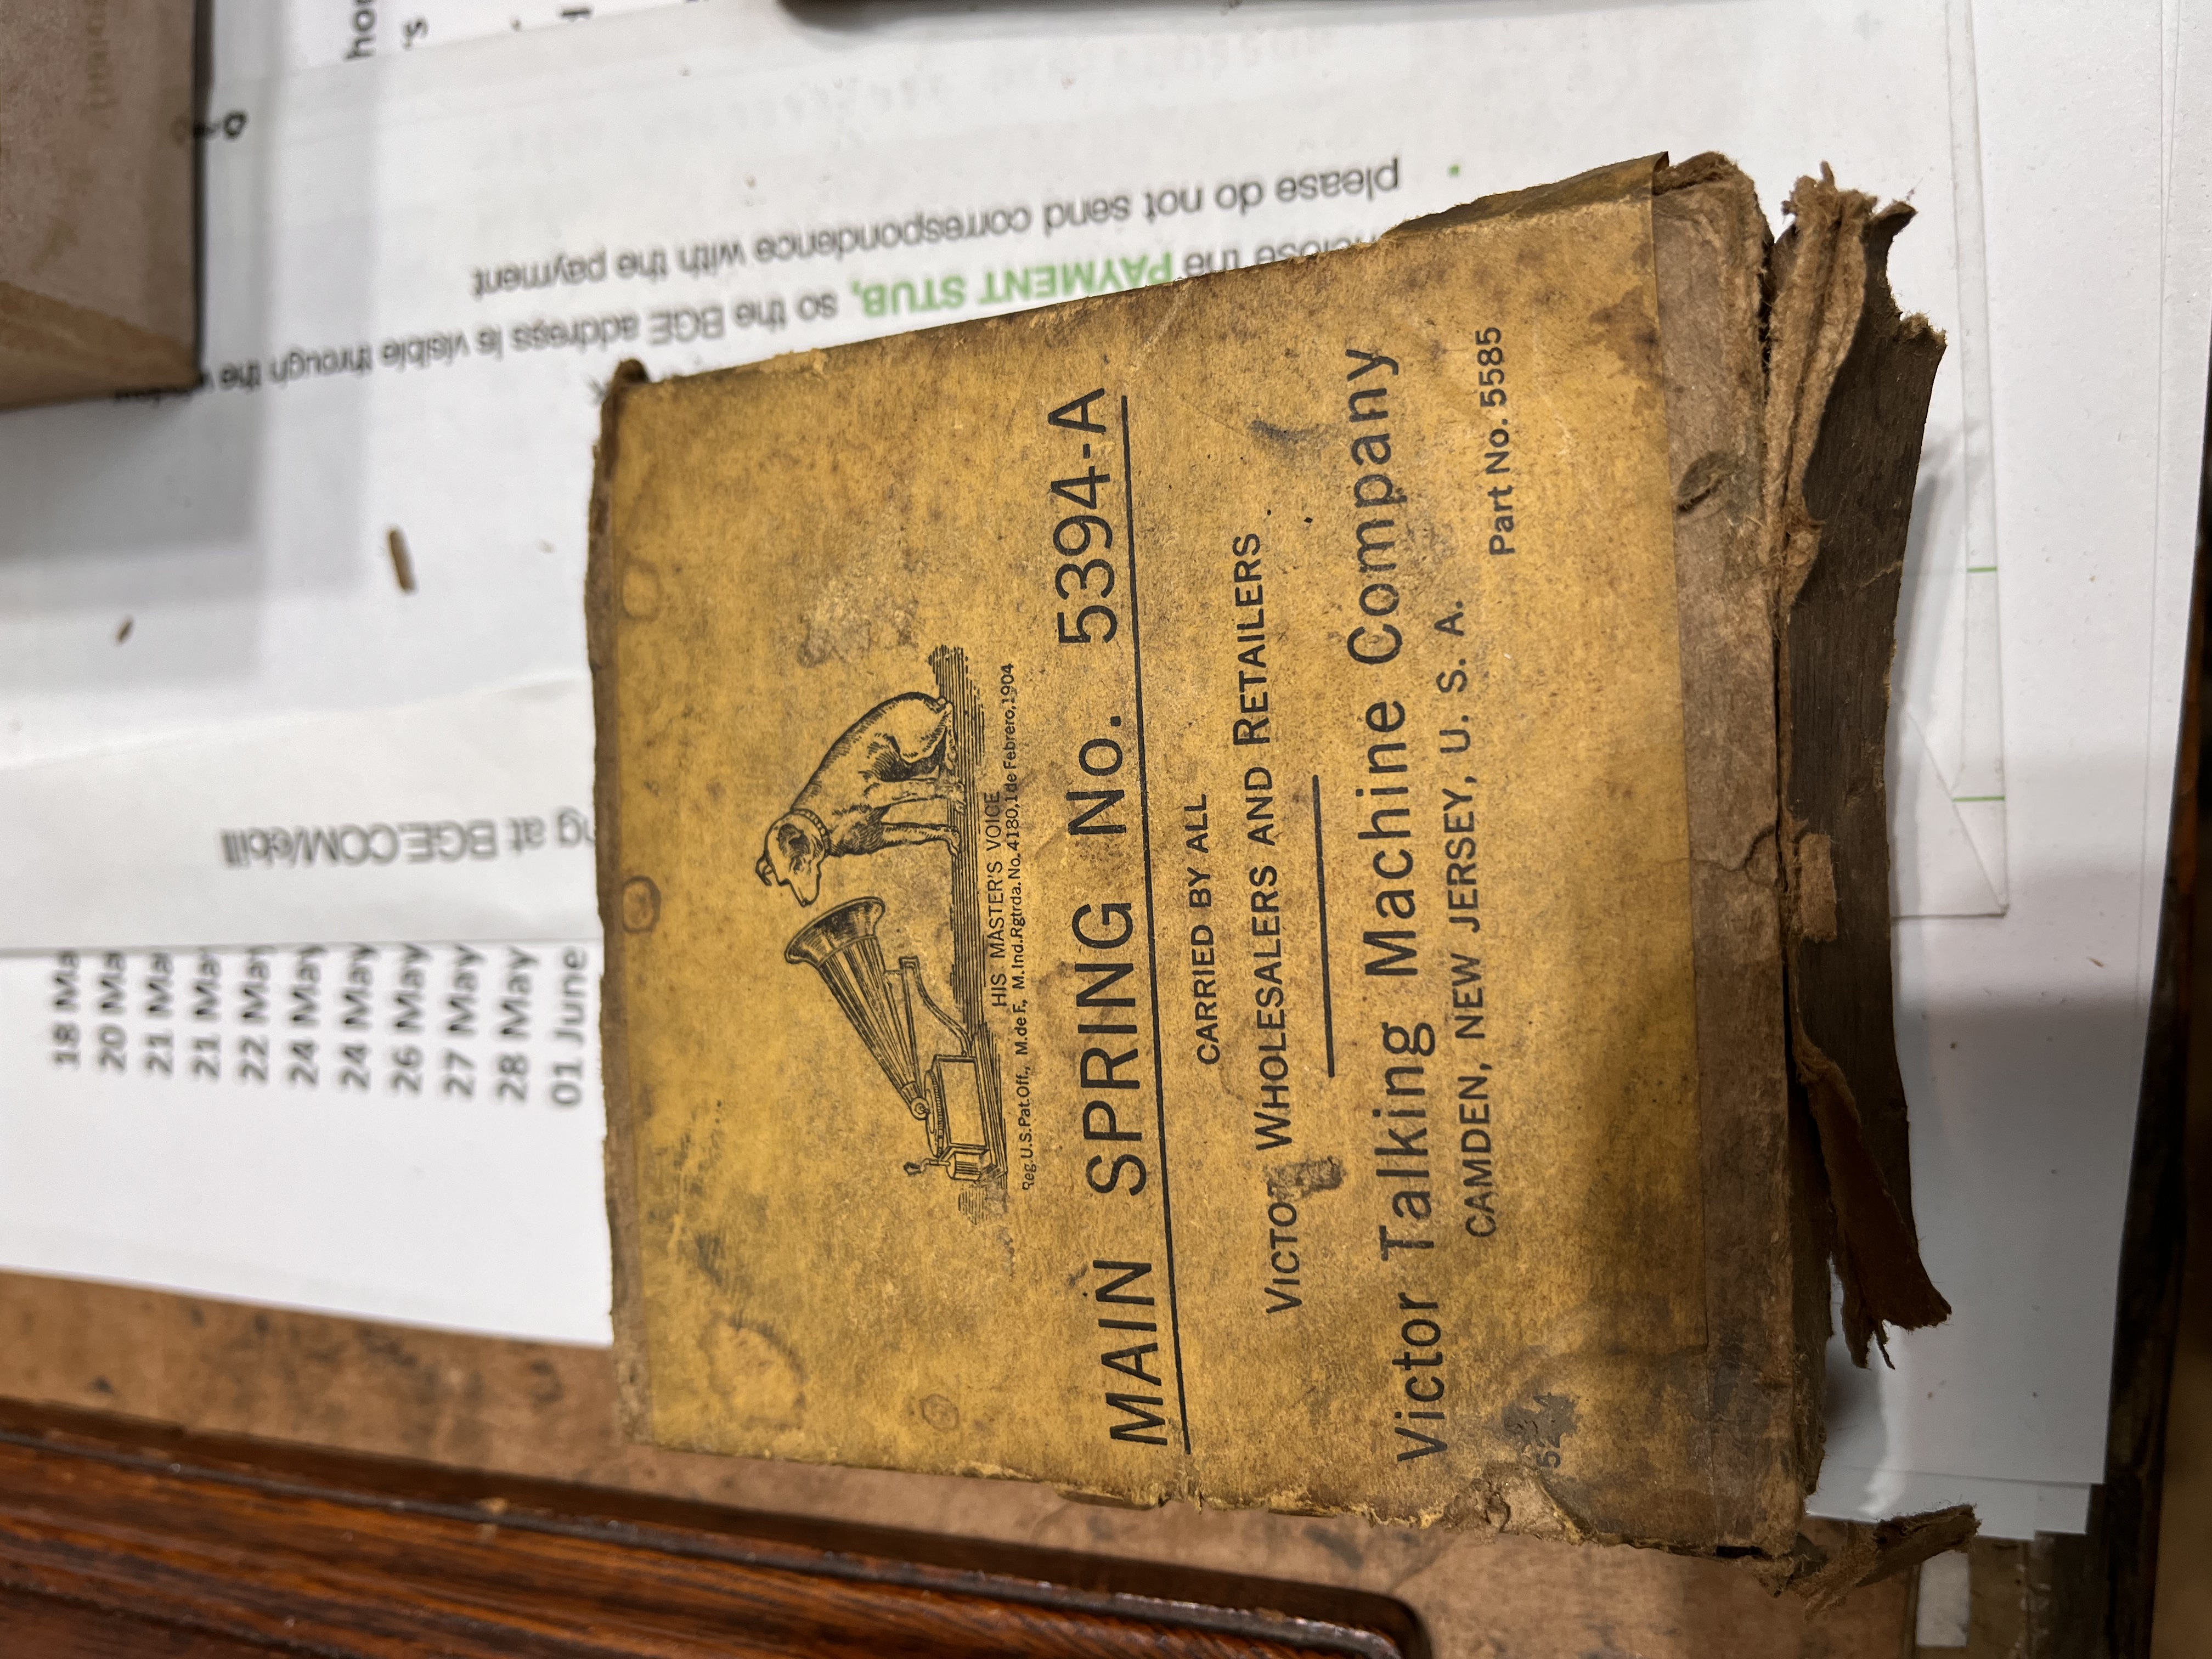 HIS MASTER'S VOICE
Reg.U.S.Pat.Off., M.de F., M.Ind.Rgtrda.No.4180,1de Febrero,1904
MAIN SPRING No. 5394-A
CARRIED BY ALL
VICTOR WHOLESALERS AND RETAILERS
Victor Talking Machine Company
CAMDEN, NEW JERSEY, U. S. A.
Part No. 5585
please do not send correspondence with the payment
the PAYMENT STUB, so the BGE address is visible through the
at BGE.COM/ebill
18 Ma
20 Ma
21 Ma
21 May
22 May
24 May
24 May
26 May
27 May
28 May
01 June